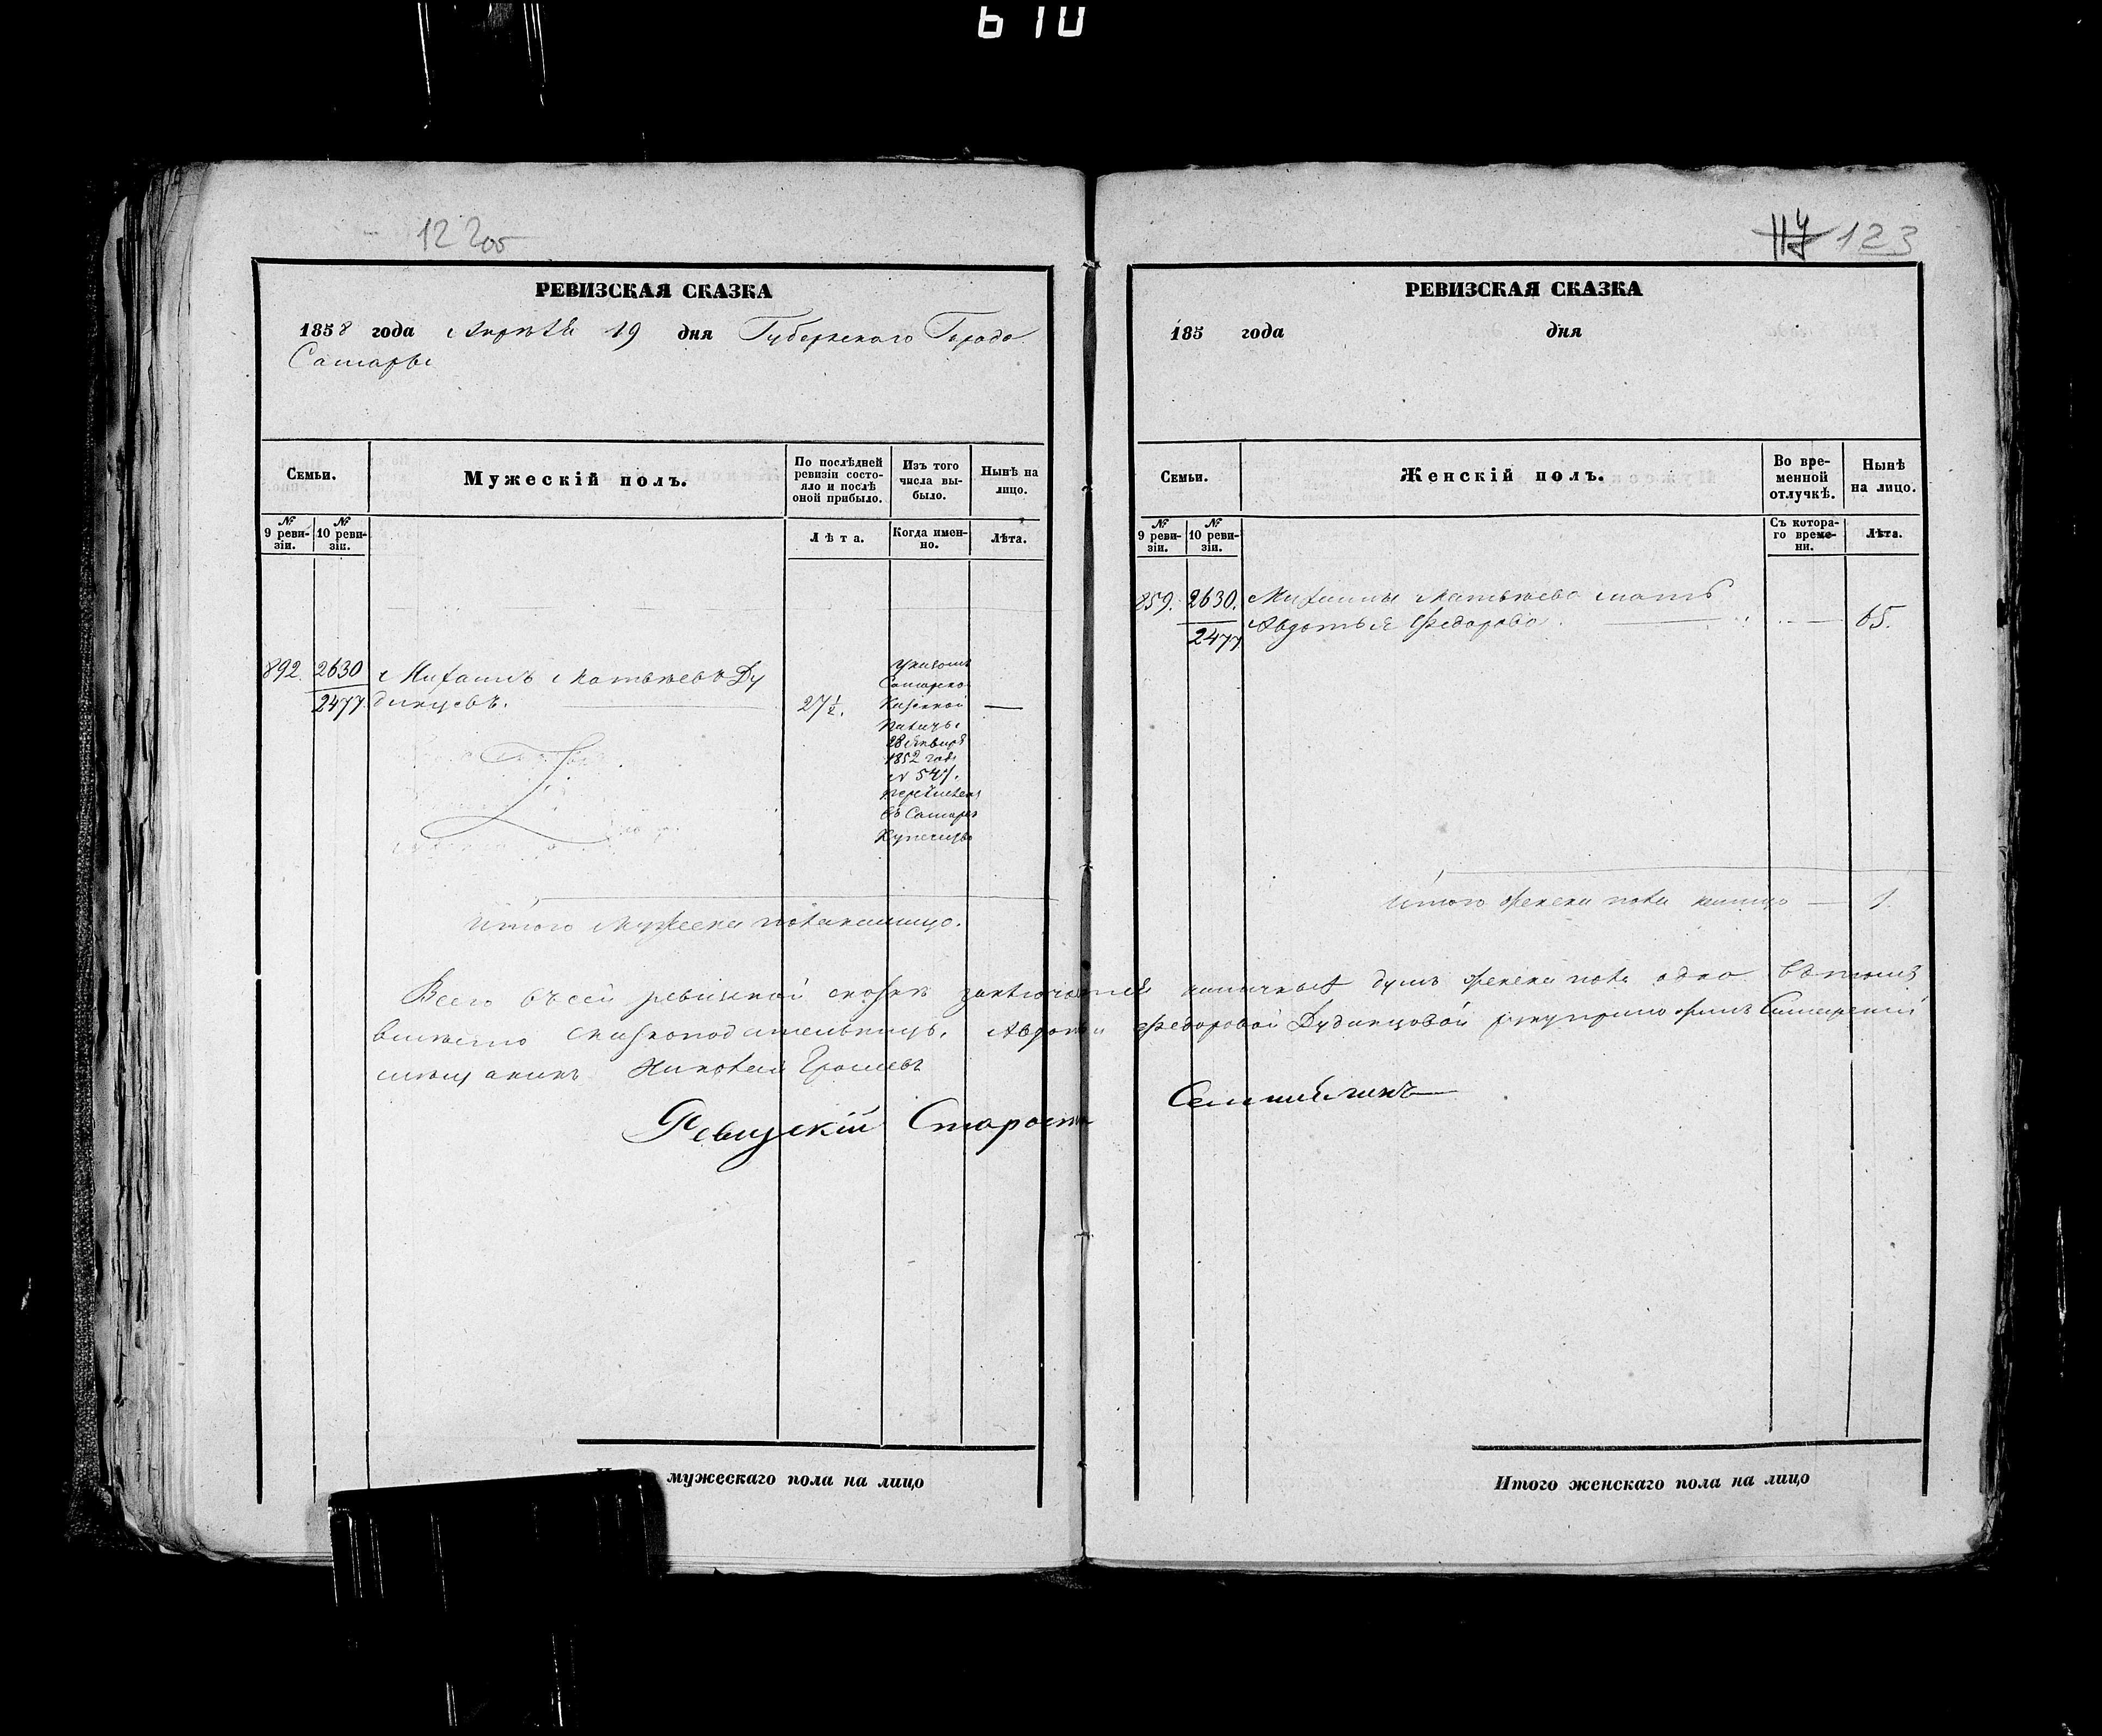 610
12 2об
РЕВИЗСКАЯ СКАЗКА
1858 года Апрѣля 19 дня Губернскаго Города
Самары
Семьи.
Мужескій полъ.
По послѣдней ревизіи состо-
яло и послѣ оной прибыло.
Изъ того числа вы-
было.
Нынѣ на лицо.
№ 9 реви-
зіи.
№ 10 реви-
зіи.
Лѣта.
Когда имен-
но.
Лѣта.
892. 2630 Михаилъ Матвѣевъ Ду
2477 динцовъ. 27½. —
Указомъ
Самарской
Казенной
Палаты
28 Января
1852 года
№ 547.
перечисленъ
въ Самарск
Купечество
Итого Мужеска пола налицо.
мужескаго пола на лицо
117 123
РЕВИЗСКАЯ СКАЗКА
185 года дня
Семьи.
Женскій полъ.
Во вре-
менной
отлучкѣ.
Нынѣ
на лицо.
№ 9 реви-
зіи.
№ 10 реви-
зіи.
Съ котора-
го време-
ни.
Лѣта.
859. 2630. Михаилы Матвѣева мать
2477 Авдотья Федорова. 65.
Итого женска пола налицо — 1.
Всего въ сей ревизской сказкѣ заключается наличныхъ душъ женска пола одна
Авдотьи Федоровой Дудинцовой руку приложилъ Самарскій
мѣщанинъ Николай
Ревизскій Староста
Итого женскаго пола на лицо